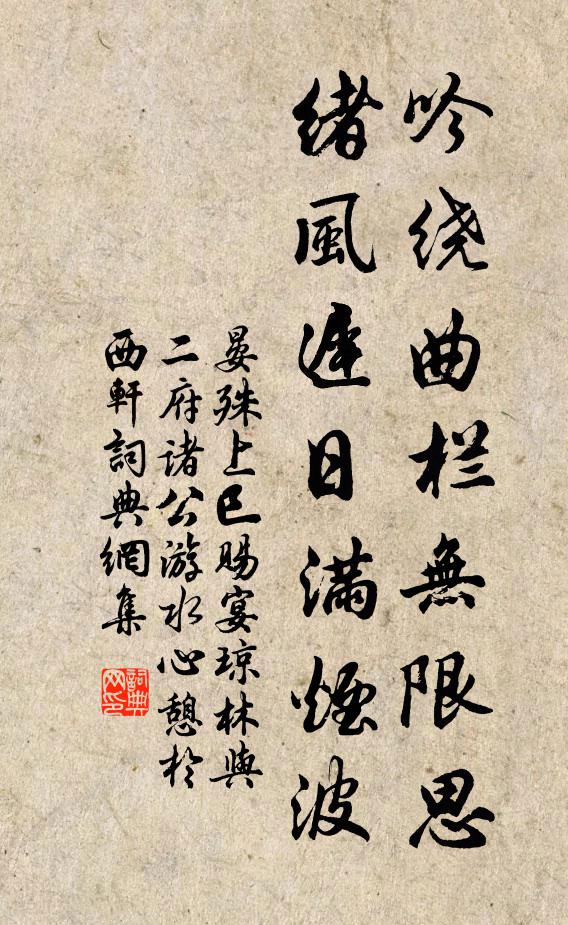 吟绕曲栏無限思
绪風遲日满煙波
晏殊上巳賜宴琼林與
二府诸公游水心憩於
西軒詞典網集
詞典
网印